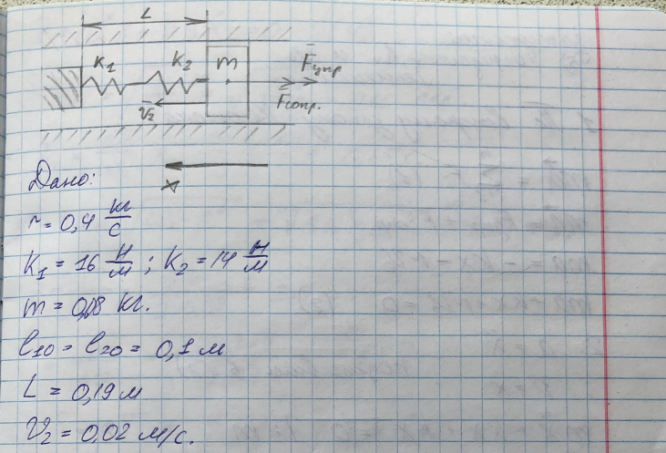 L
K₁ K₂ m F̄упр
Fсопр.
v̄₂
x
Дано:
r = 0,4 кг/с
K₁ = 16 Н/м ; K₂ = 14 Н/м
m = 0,08 кг.
l₁₀ = l₂₀ = 0,1 м
L = 0,19 м
V₂ = 0,02 м/с.